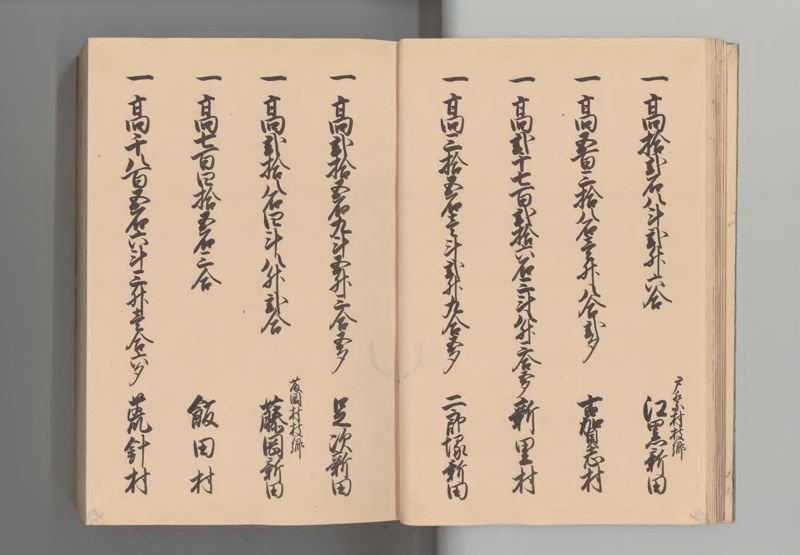 一 高拾弐石八斗弐升六合
戸奈良村枝郷
江黒新田
一 高五百三拾八石三斗八合弐夕
古賀志村
一 高弐千七百弐拾六石三斗八升三合五夕
新里村
一 高三拾五石壱斗弐升九合五夕
二郎塚新田
一 高弐拾五石九斗五升三合五夕
足次新田
一 高弐拾八石四斗八升弐合
藤岡村枝郷
藤岡新田
一 高七百四拾五石三合
飯田村
一 高千八百五石六斗三升壱合六夕
荒針村